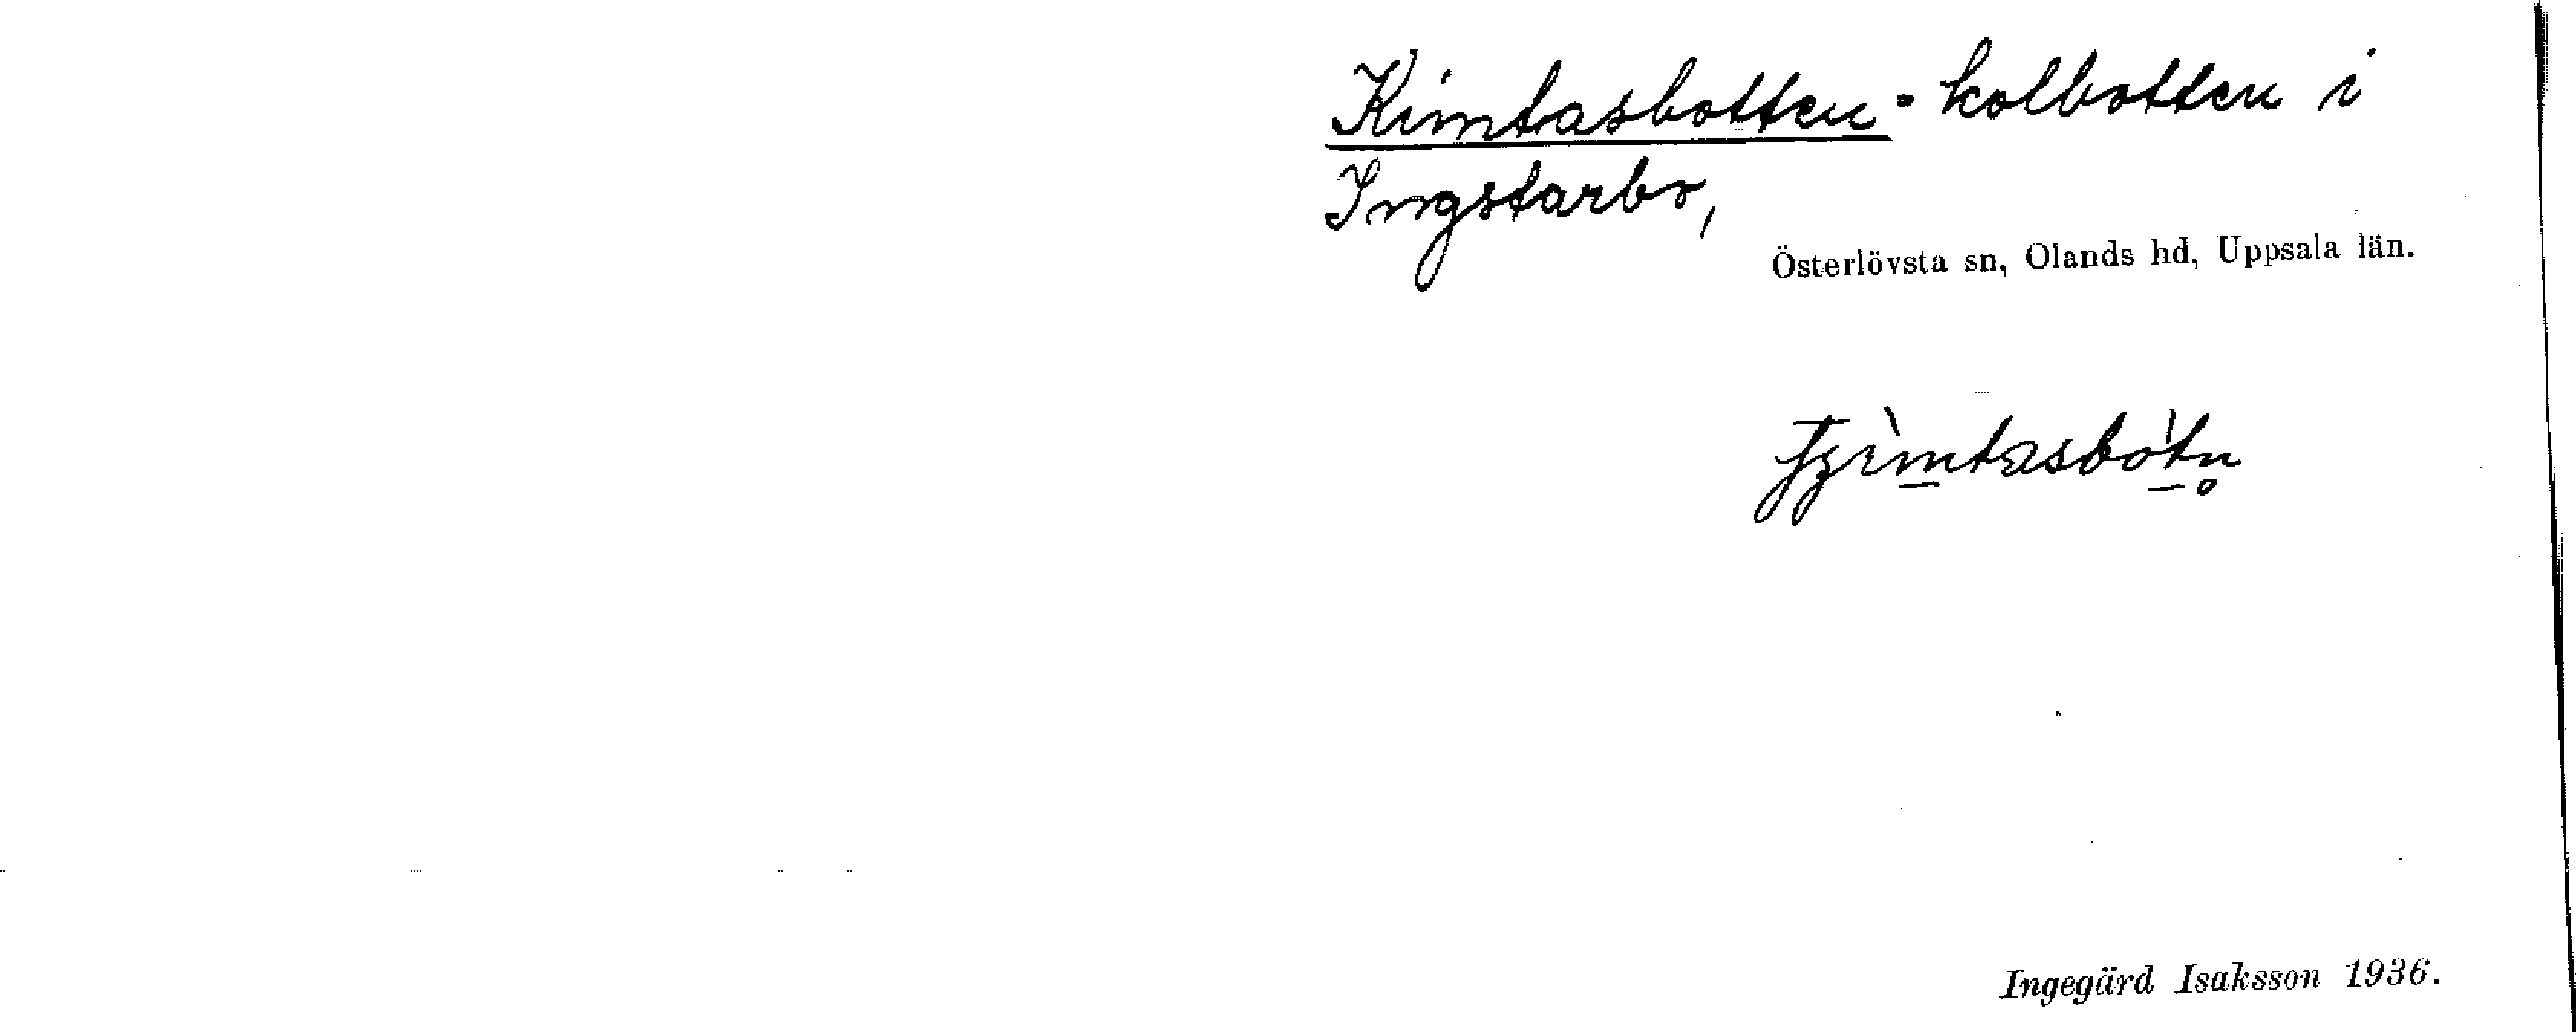 Kimtasbotten - kolbotten i
Ingstarbo,
Österlövsta sn, Olands hd, Uppsala län.
Ingegärd Isaksson 1936.